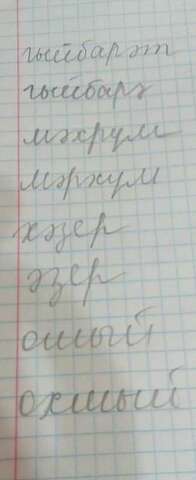 гыйбарәт
гыйбарә
мәхрүм
мәрхүм
хәзер
әзер
ошый
охшый